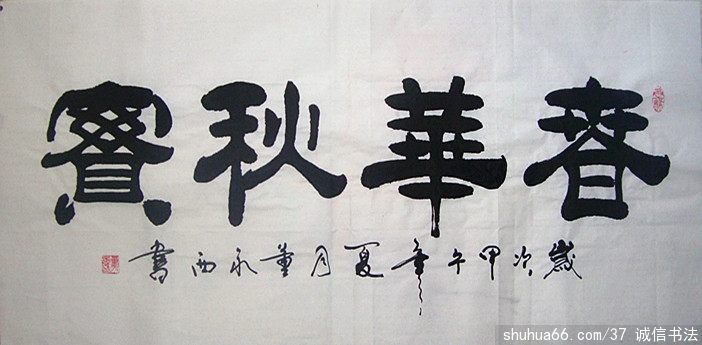 春華秋實
歲次甲午年夏月董永西書
shuhua66.com/37 诚信书法